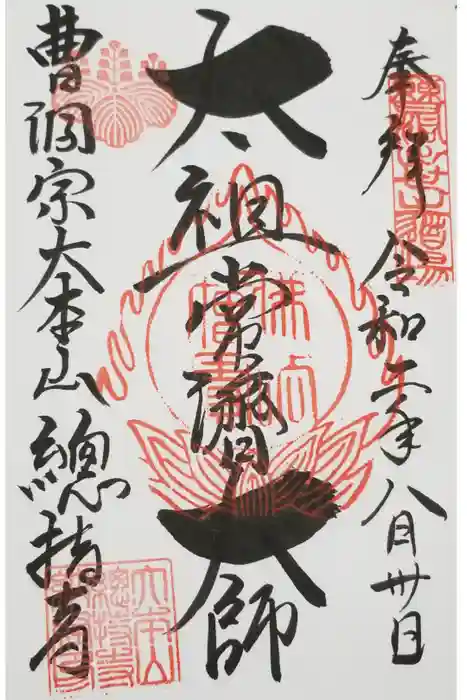 奉拝 令和二年八月卅日
太祖常濟大師
曹洞宗大本山總持寺